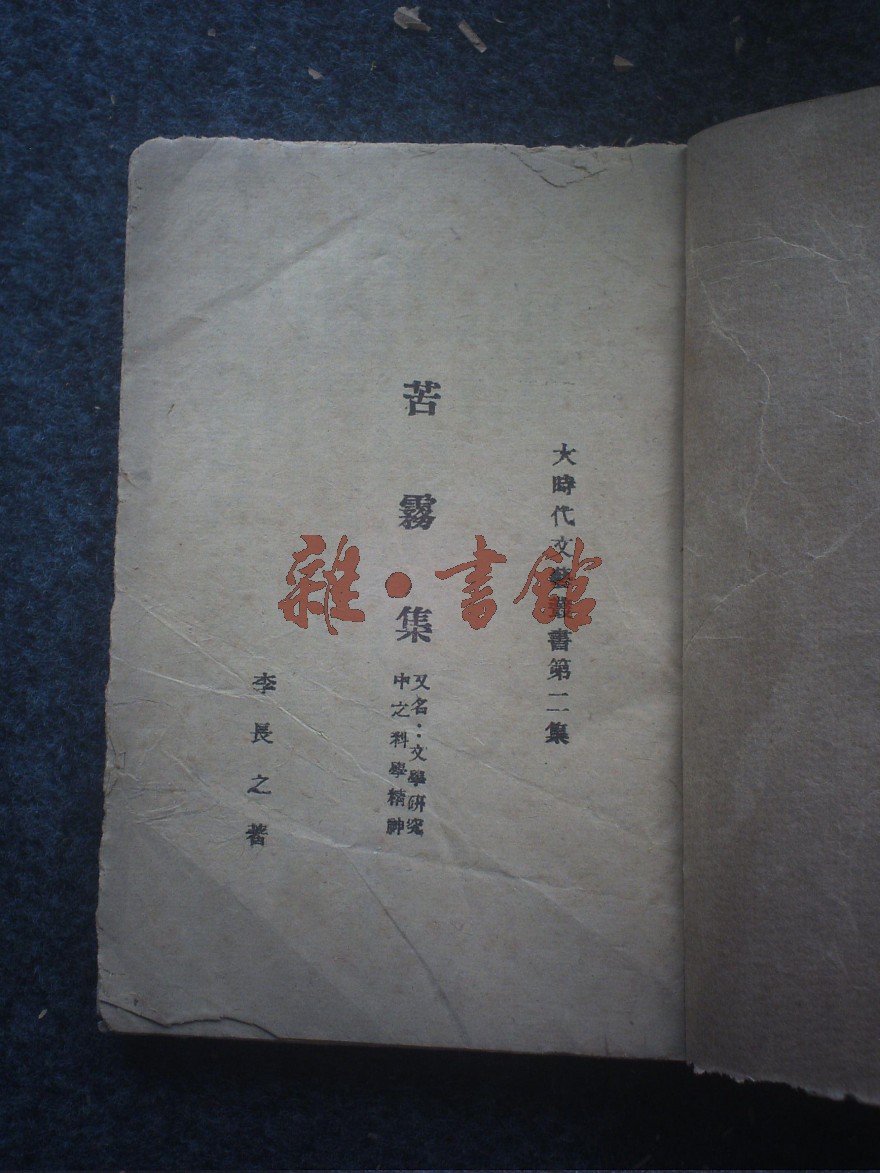 大時代文藝叢書第二集
苦霧集
又名：文學研究
中之科學精神
李長之著
雜·書館